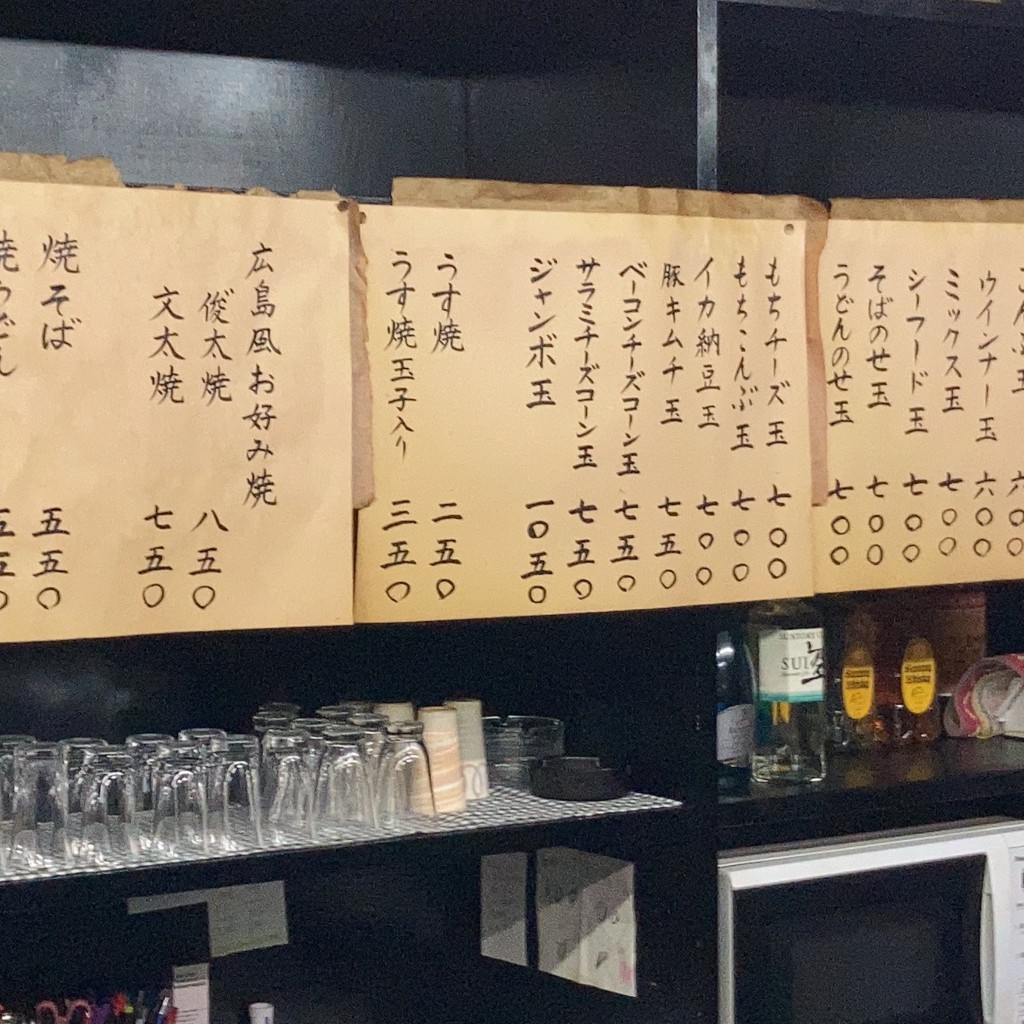 ウインナー玉 六〇〇
ミックス玉 七〇〇
シーフード玉 七〇〇
そばのせ玉 七〇〇
うどんのせ玉 七〇〇
もちチーズ玉 七〇〇
もちこんぶ玉 七〇〇
イカ納豆玉 七〇〇
豚キムチ玉 七五〇
ベーコンチーズコーン玉 七五〇
サラミチーズコーン玉 七五〇
ジャンボ玉 一〇五〇
うす焼 二五〇
うす焼玉子入り 三五〇
広島風お好み焼
俊太焼 八五〇
文太焼 七五〇
焼そば 五五〇
焼うどん 五五〇
SUNTORY
SUI